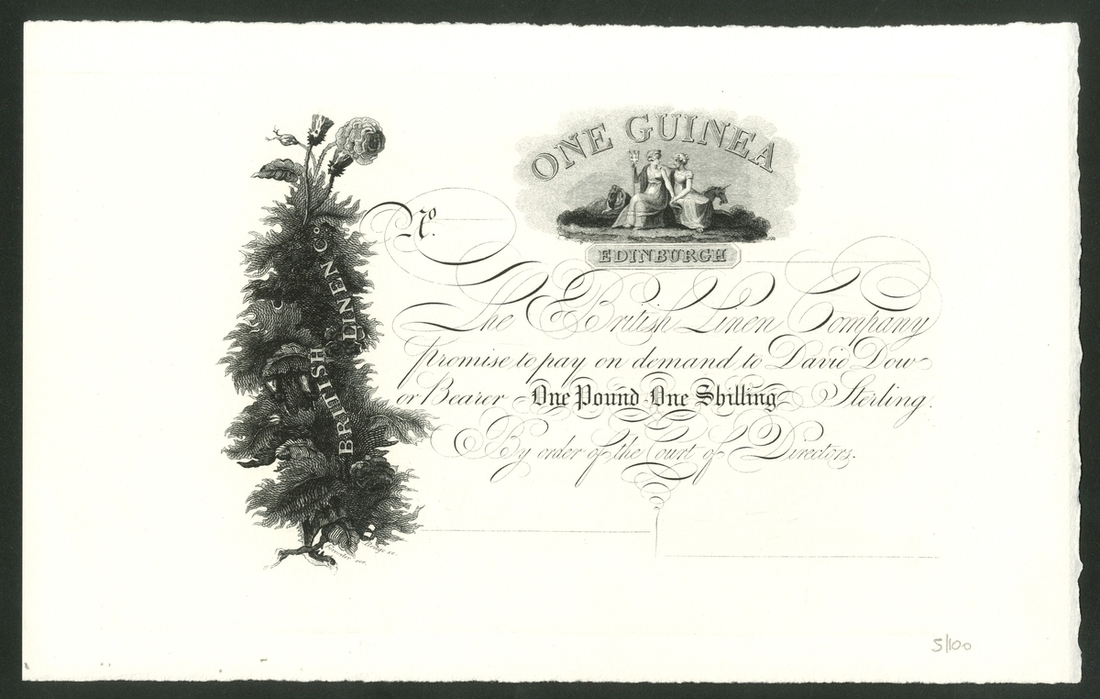 ONE GUINEA
EDINBURGH
No.
BRITISH LINEN Co.
The British Linen Company
promise to pay on demand to David Dow
or Bearer One Pound One Shilling Sterling.
By order of the Court of Directors.
5/100